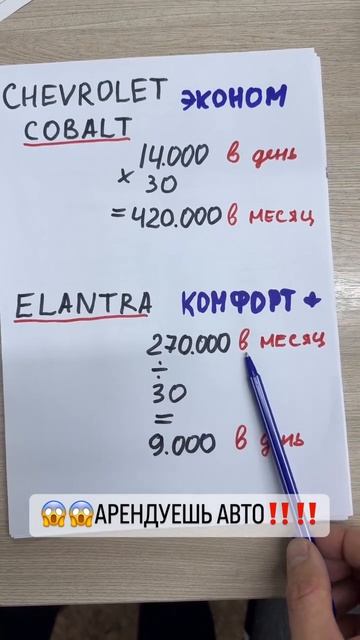 CHEVROLET ЭКОНОМ
COBALT
14.000 в день
× 30
= 420.000 в месяц
ELANTRA КОМФОРТ +
270.000 в месяц
÷
30
=
9.000 в день
😱😱АРЕНДУЕШЬ АВТО‼️‼️